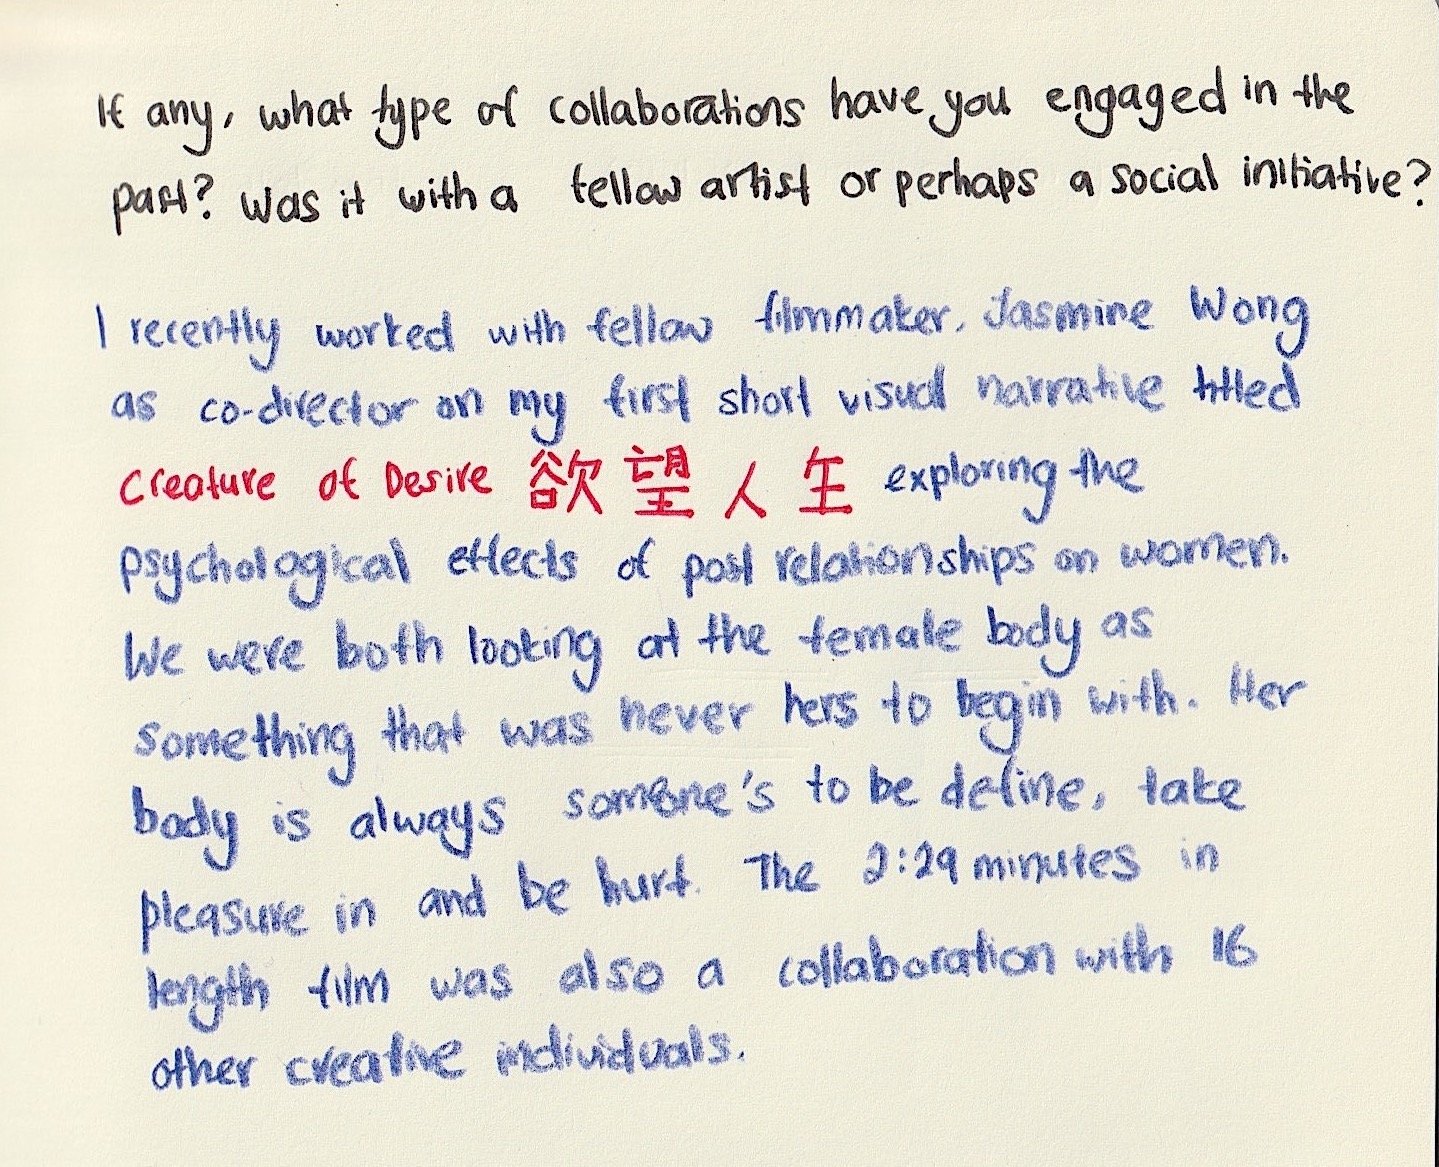 If any, what type of collaborations have you engaged in the
past? Was it with a fellow artist or perhaps a social initiative?
I recently worked with fellow filmmaker, Jasmine Wong
as co-director on my first short visual narrative titled
Creature of Desire 欲望人生 exploring the
psychological effects of past relationships on women.
We were both looking at the female body as
something that was never hers to begin with. Her
body is always someone's to be define, take
pleasure in and be hurt. The 2:29 minutes in
length film was also a collaboration with 16
other creative individuals.